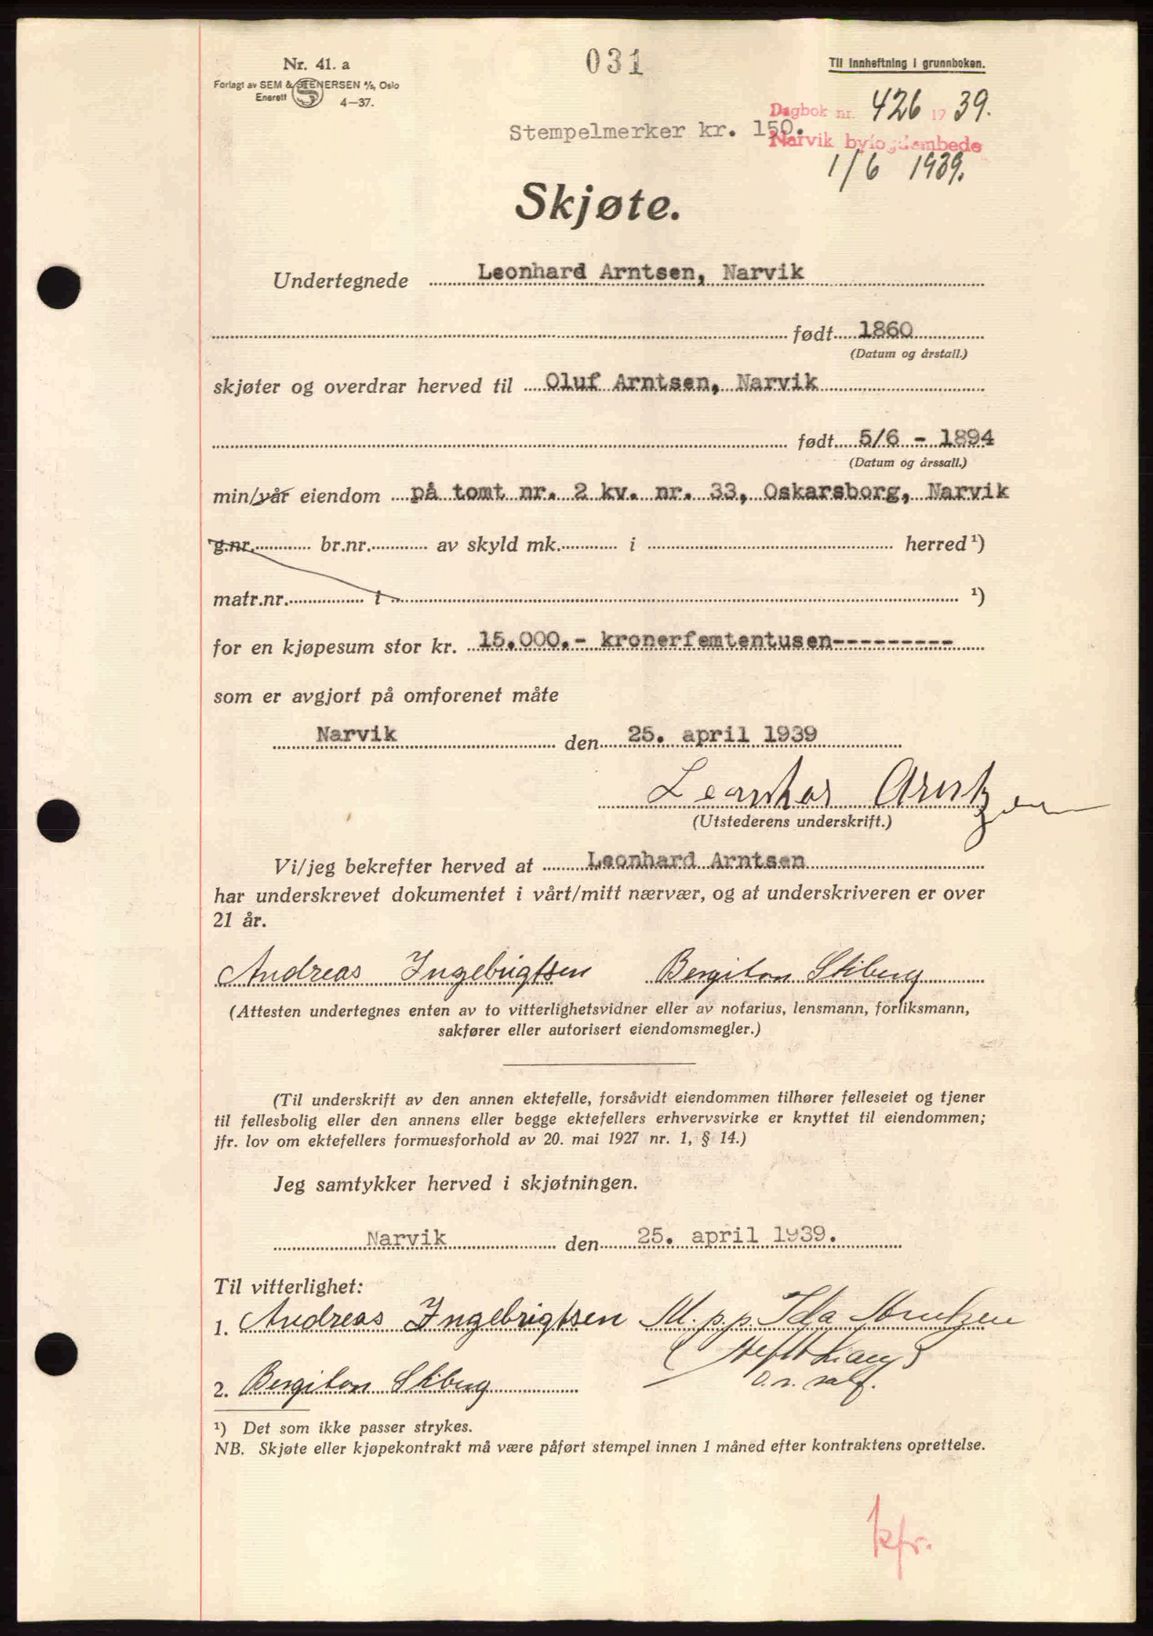 Nr. 41. a
Forlagt av SEM & STENERSEN A/S, Oslo
Enerett 4-37.
031
Til innheftning i grunnboken.
Dagbok nr. 426 1939.
Stempelmerker kr. 150.
Narvik byfogdembede
1/6 1939.
Skjøte.
Undertegnede Leonhard Arntsen, Narvik
født 1860
(Datum og årstall.)
skjøter og overdrar herved til Oluf Arntsen, Narvik
født 5/6 - 1894
(Datum og årssall.)
min/vår eiendom på tomt nr. 2 kv. nr. 33, Oskarsborg, Narvik
g.nr. br.nr. av skyld mk. i herred ¹)
matr.nr. i ¹)
for en kjøpesum stor kr. 15.000.- kronerfemtentusen---------
som er avgjort på omforenet måte
Narvik den 25. april 1939
Leonhar Arntzen
(Utstederens underskrift.)
Vi/jeg bekrefter herved at Leonhard Arntsen
har underskrevet dokumentet i vårt/mitt nærvær, og at underskriveren er over
21 år.
Andreas Ingebrigtsen Bergiton Skberg
(Attesten undertegnes enten av to vitterlighetsvidner eller av notarius, lensmann, forliksmann,
sakfører eller autorisert eiendomsmegler.)
(Til underskrift av den annen ektefelle, forsåvidt eiendommen tilhører felleseiet og tjener
til fellesbolig eller den annens eller begge ektefellers erhvervsvirke er knyttet til eiendommen;
jfr. lov om ektefellers formuesforhold av 20. mai 1927 nr. 1, § 14.)
Jeg samtykker herved i skjøtningen.
Narvik den 25. april 1939.
Til vitterlighet:
1. Andreas Ingebrigtsen M. p. p. Ida Arntzen
2. Bergiton Skberg
o.r. sakf.
¹) Det som ikke passer strykes.
NB. Skjøte eller kjøpekontrakt må være påført stempel innen 1 måned efter kontraktens oprettelse.
kfr.